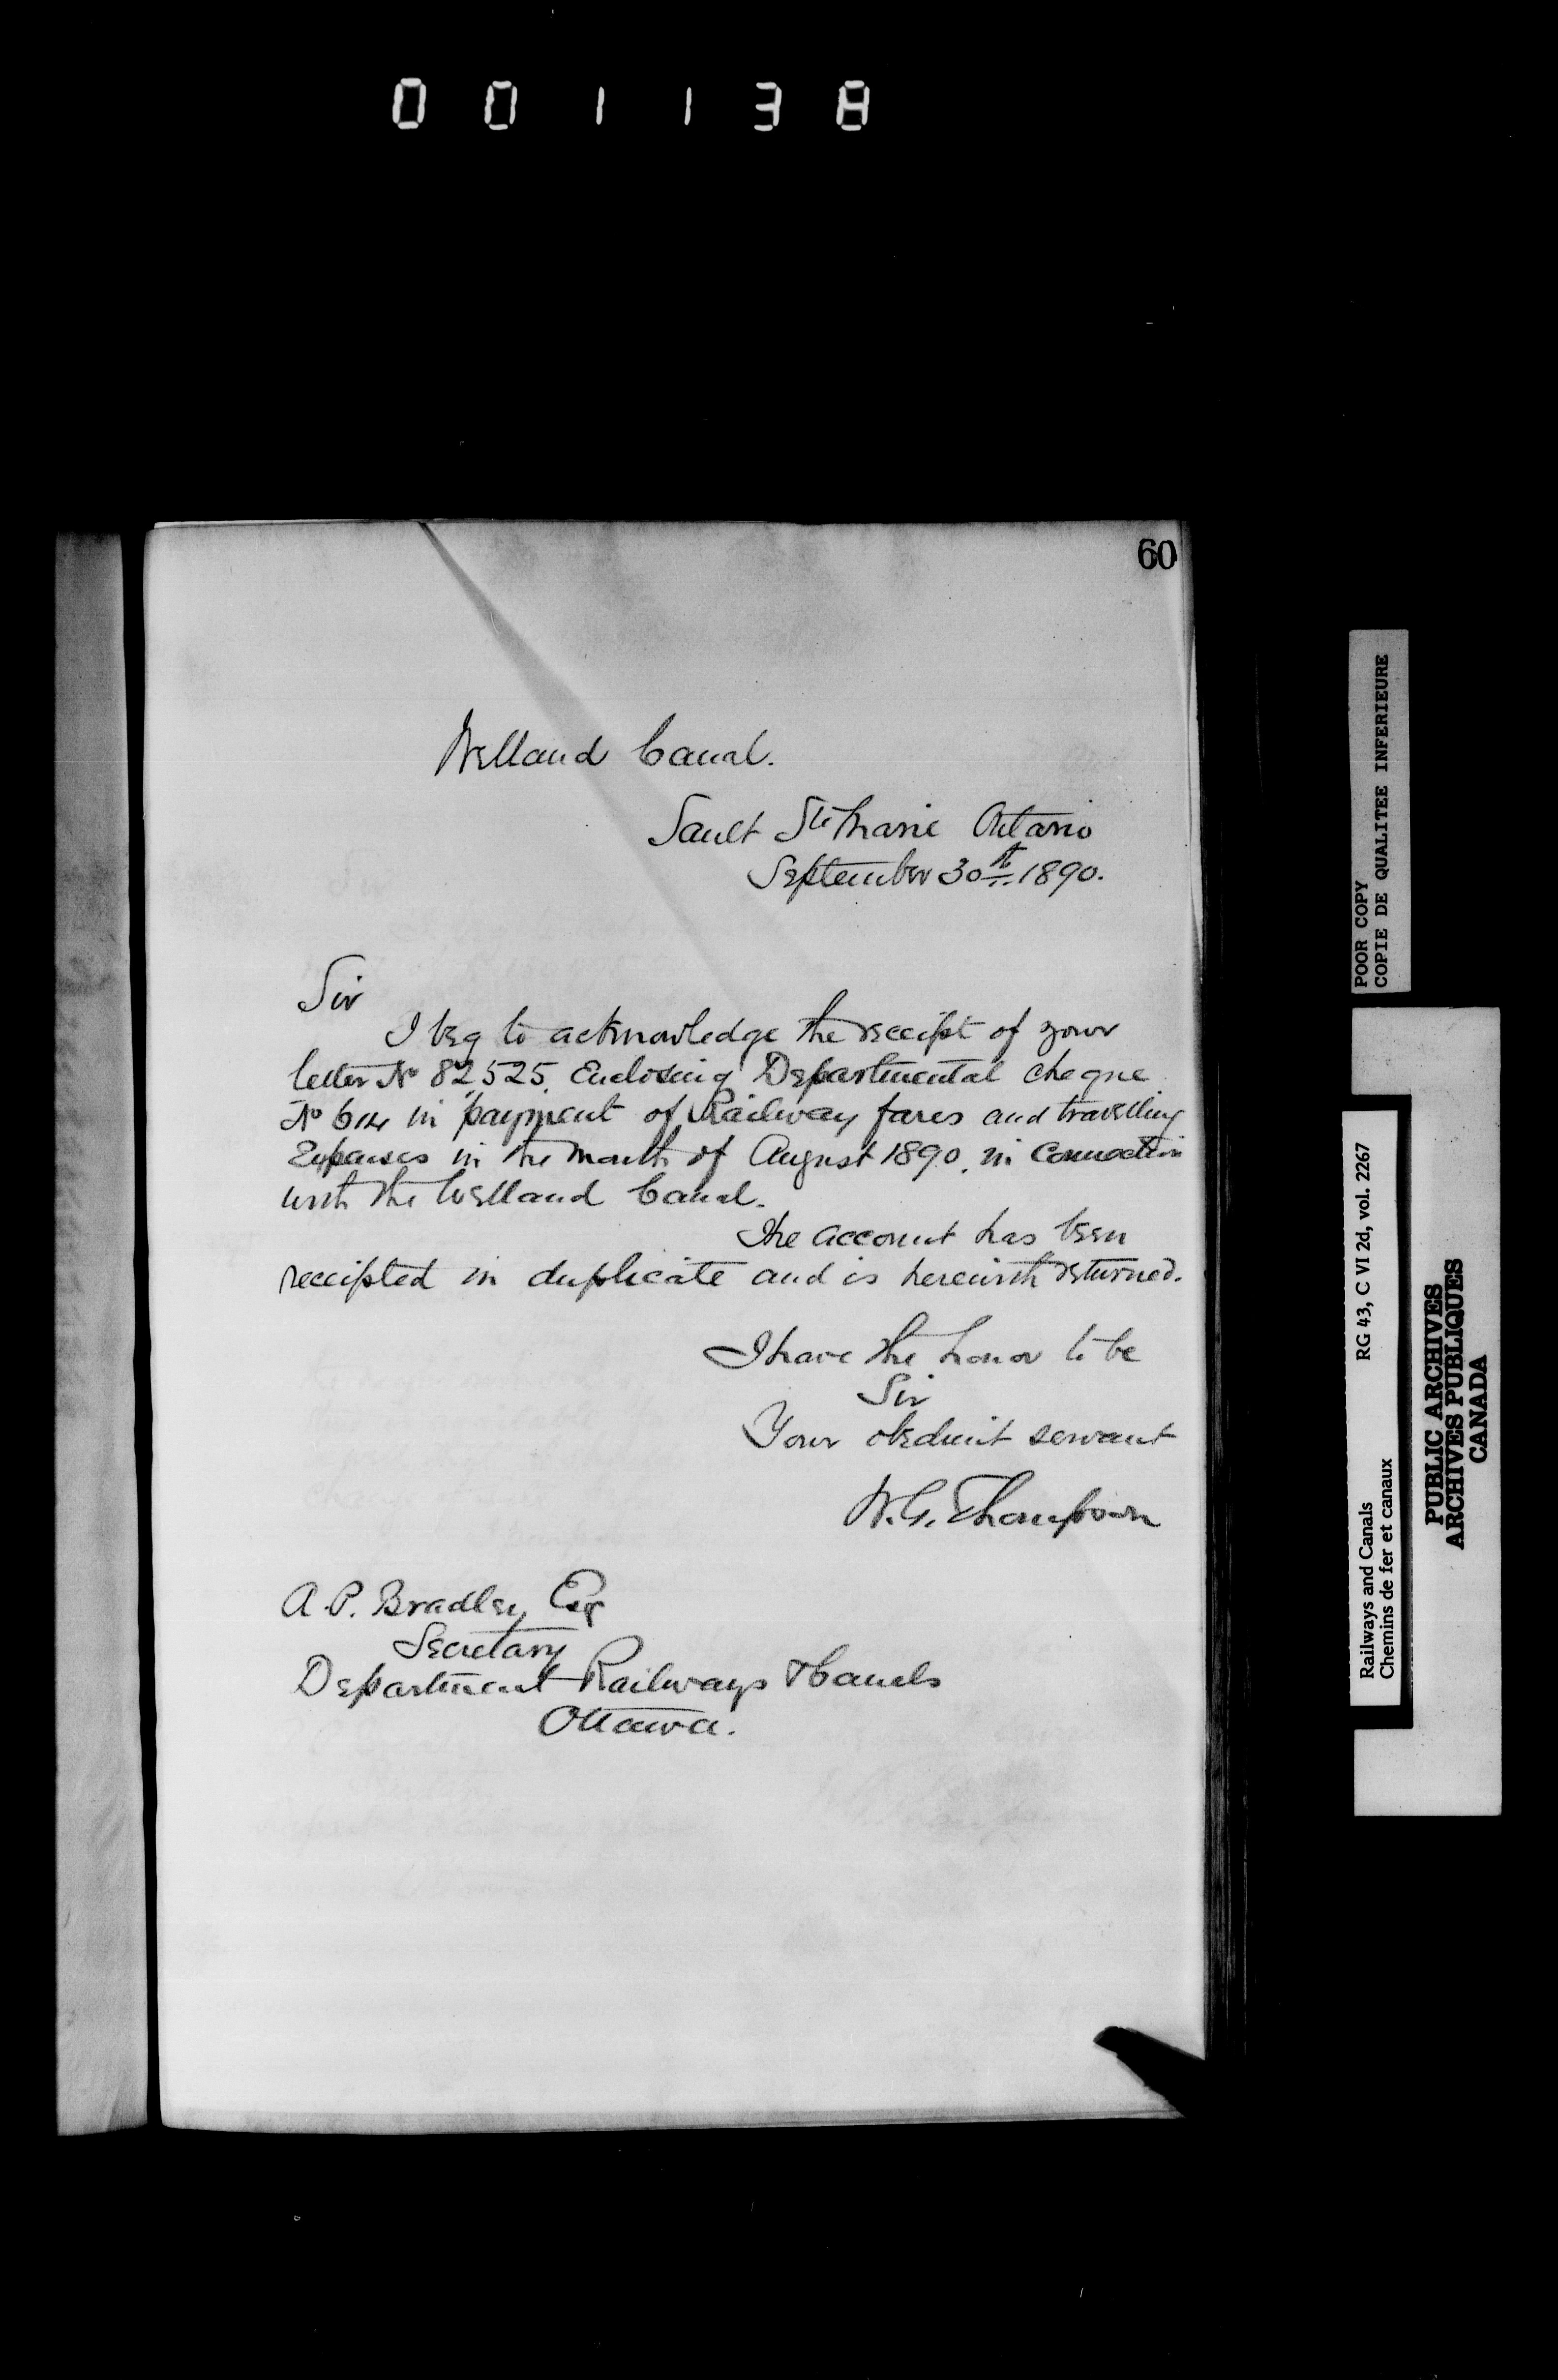 001138
60
Welland Canal.
Sault Ste Marie Ontario
September 30th 1890.
Sir
I beg to acknowledge the receipt of your
letter No 82525, Enclosing Departmental cheque
No 614 in payment of Railway fares and travelling
Expenses in the month of August 1890, in Connection
with the Welland Canal.
The account has been
receipted in duplicate and is herewith returned.
I have the honor to be
Sir
Your obedient servant
W.G. Thompson
A.P. Bradley, Esq
Secretary
Department Railways & Canals
Ottawa.
POOR COPY
COPIE DE QUALITEE INFERIEURE
Railways and Canals RG 43, C VI 2d, vol. 2267
Chemins de fer et canaux
PUBLIC ARCHIVES
ARCHIVES PUBLIQUES
CANADA